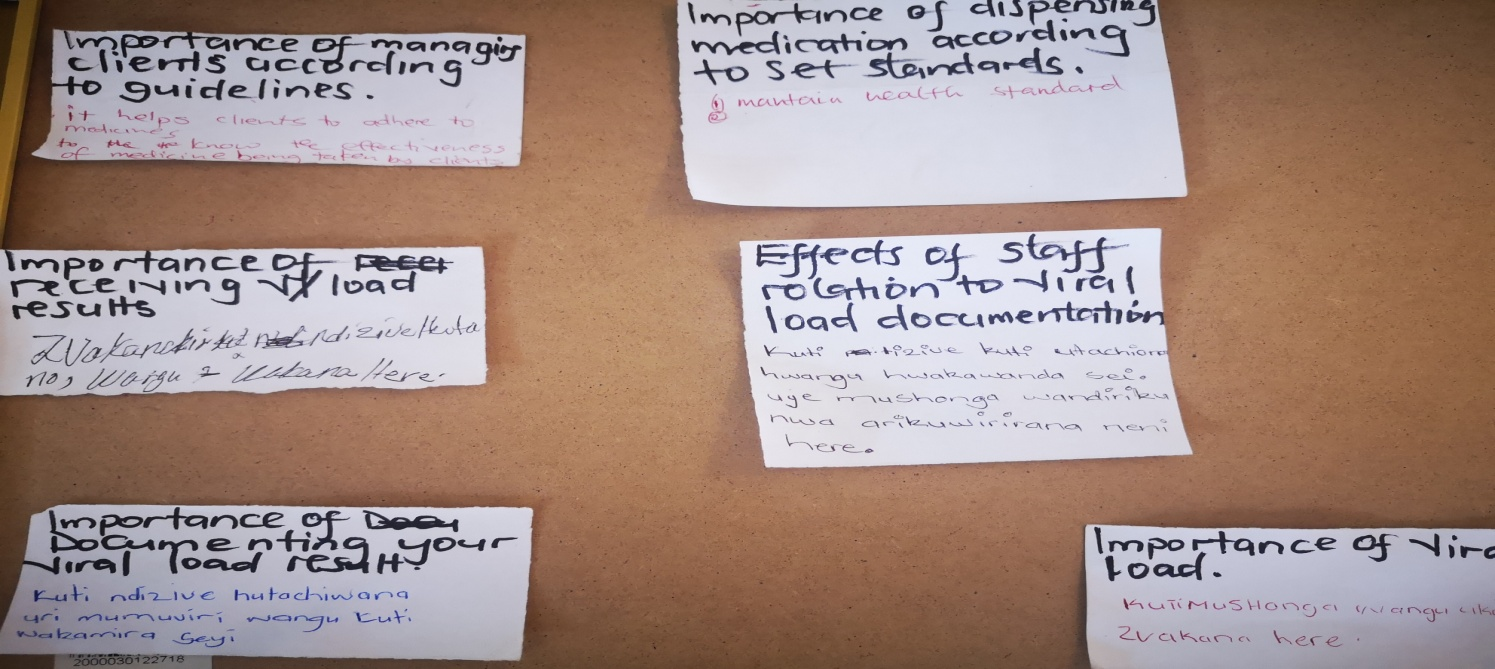 Importance of managing
clients according
to guidelines.
it helps clients to adhere to
medicines
to the know the effectiveness
of medicine being taken by clients
Importance of dispensing
medication according
to set standards.
① mantain health standard
②
Importance of
receiving V/load
results
ndizive Huta
no, Wangu
Here.
Effects of staff
rolation to viral
load documentation
Kuti tizive kuti utachiona
hwangu hwakawanda sei.
uye mushonga wandiriku
nwa arikuwirirana neni
here.
Importance of
Documenting your
viral load result?
Kuti ndizive hutachiwana
uri mumuviri wangu kuti
wakamira Seyi
2000030122718
Importance of Vira
Load.
KutiMUSHonga wangu
Zvakana here.